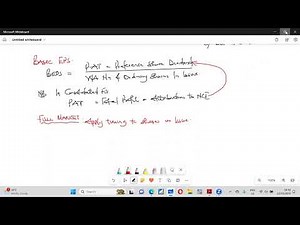 Microsoft Whiteboard
Untitled whiteboard
BASIC EPS:
BEPS = PAT - Preference Share Dividend
WA No of Ordinary Shares In Issue
In Consolidated FS
PAT = Total Profit - Attributable to NCI
FULL MARKET - Apply timing to shares in Issue